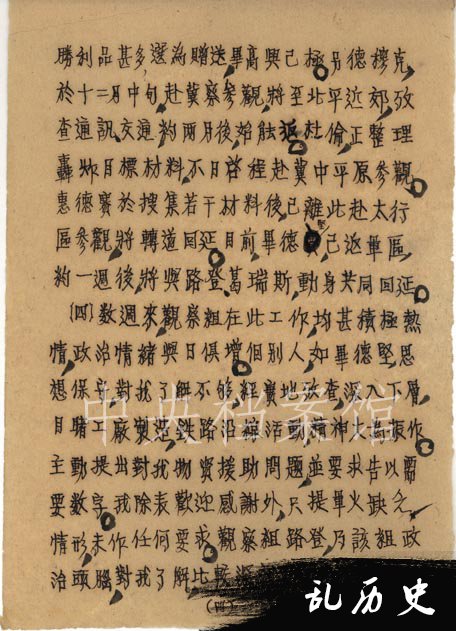 勝利品甚多選為贈送畢高興已極另德穆克
於十二月中旬赴冀察參觀將至北平近郊攷
查通訊交通約兩月後始能返杜倫正整理
轟炸目標材料不日啓程赴冀中平原參觀
惠德賽於搜集若干材料後已離此赴太行
區參觀將轉道回延目前畢德堅已返軍區
約一週後將與路登葛瑞斯動身共同回延
(四)数週來觀察組在此工作均甚積極熱
情政治情緒與日俱增個别人如畢德堅思
想保守對我了解不够經實地攷查深入下層
目睹工廠製造鉄路沿線活動精神大為振作
主動提出對我物資援助問題並要求告以需
要数字我除表歡迎感謝外只提軍火缺乏
情形未作任何要求觀察組路登乃該組政
治頭腦對我了解比較
(四)
中央档案馆
乱历史